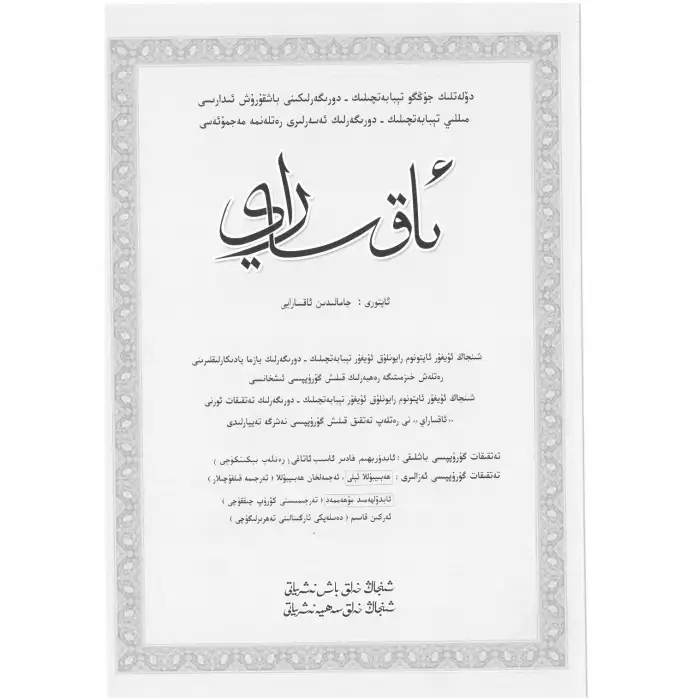 دۆلەتلىك جۇڭگو تېبابەتچىلىك - دورىگەرلىكىنى باشقۇرۇش ئىدارىسى
مىللىي تېبابەتچىلىك - دورىگەرلىك ئەسەرلىرى رەتلەنمە مەجمۇئەسى
ئاقساراي
ئاپتورى : جامالىدىن ئاقسارايى
شىنجاڭ ئۇيغۇر ئاپتونوم رايونلۇق ئۇيغۇر تېبابەتچىلىك - دورىگەرلىك يازما يادىكارلىقلىرىنى
رەتلەش خىزمىتىگە رەھبەرلىك قىلىش گۇرۇپپىسى ئىشخانىسى
شىنجاڭ ئۇيغۇر ئاپتونوم رايونلۇق ئۇيغۇر تېبابەتچىلىك - دورىگەرلىك تەتقىقات ئورنى
«ئاقساراي» نى رەتلەپ تەتقىق قىلىش گۇرۇپپىسى نەشرگە تەييارلىدى
تەتقىقات گۇرۇپپىسى باشلىقى : ئابدۇرېھىم قادىر ئاسىپ ئاتاغى (رەتلەپ بېكىتكۈچى)
تەتقىقات گۇرۇپپىسى ئەزالىرى : ھەبىبۇللا ئېلى ، ئەجمەلخان ھەبىبۇللا (تەرجىمە قىلغۇچىلار)
ئابدۇلھەمىد مۇھەممەد (تەرجىمىسىنى كۆرۈپ چىققۇچى)
ئەركىن قاسىم (دەسلەپكى تەھرىرلىگۈچى)
شىنجاڭ خەلق باش نەشرىياتى
شىنجاڭ خەلق سەھىيە نەشرىياتى